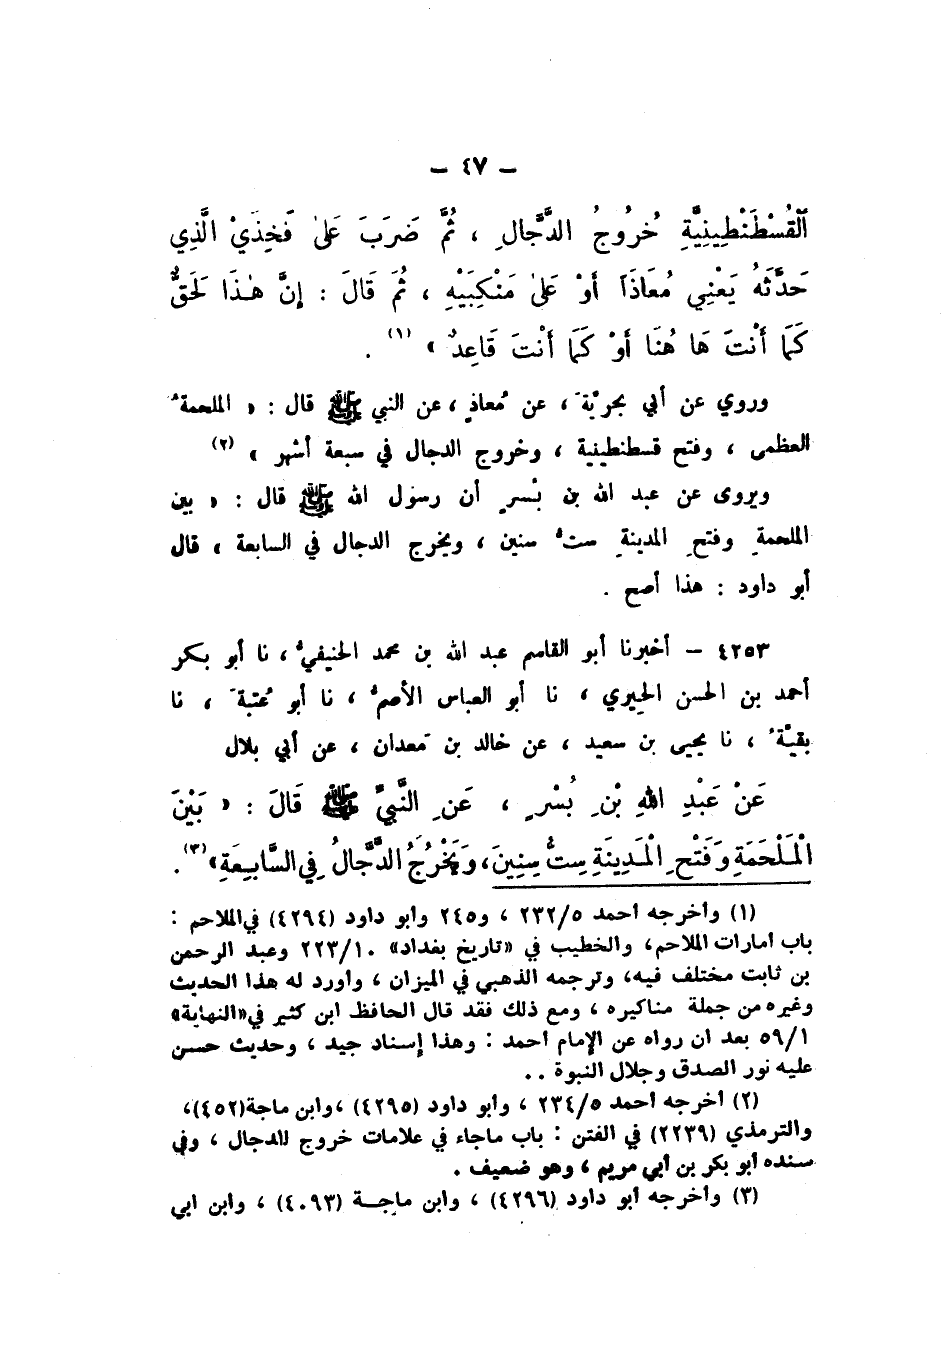 – ٤٧ –
ٱلْقُسْطَنْطِينِيَّةِ خُرُوجُ الدَّجَّالِ ، ثُمَّ ضَرَبَ عَلىٰ فَخِذَيْ الَّذِي
حَدَّثَهُ يَعْنِي مُعَاذَاً أَوْ عَلىٰ مَنْكِبَيْهِ ، ثُمَّ قَالَ : إِنَّ هٰذَا لَحَقٌّ
كَمَا أَنْتَ هَا هُنَا أَوْ كَمَا أَنْتَ قَاعِدٌ » (١) .
وروي عن أبي بحريَّةَ ، عن مُعاذٍ ، عن النبي ﷺ قال : « الملحمةُ
العظمى ، وفتح قسطنطينية ، وخروج الدجال في سبعة أشهر » (٢)
ويروى عن عبد الله بن بُسرٍ أن رسول الله ﷺ قال : « بين
الملحمةِ وفتحِ المدينةِ ستُّ سنين ، ويخرج الدجال في السابعة ، قال
أبو داود : هذا أصح .
٤٢٥٣ – أخبرنا أبو القاسم عبد الله بن محمد الحنيفيُّ ، نا أبو بكر
أحمد بن الحسن الحِيري ، نا أبو العباس الأصمُّ ، نا أبو عُتبةَ ، نا
بقيَّةُ ، نا يحيى بن سعيد ، عن خالد بن مَعدان ، عن أبي بلال
عَنْ عَبْدِ اللهِ بْنِ بُسْرٍ ، عَنِ النَّبِيِّ ﷺ قَالَ : « بَيْنَ
الْمَلْحَمَةِ وَفَتْحِ الْمَدِينَةِ سِتُّ سِنِينَ ، وَيَخْرُجُ الدَّجَّالُ فِي السَّابِعَةِ » (٣) .
(١) وأخرجه أحمد ٢٣٢/٥ ، و٢٤٥ وأبو داود (٤٢٩٤) في الملاحم :
باب أمارات الملاحم، والخطيب في «تاريخ بغداد» ٢٢٣/١٠ وعبد الرحمن
بن ثابت مختلف فيه، وترجمه الذهبي في الميزان ، وأورد له هذا الحديث
وغيره من جملة مناكيره ، ومع ذلك فقد قال الحافظ ابن كثير في «النهاية»
٥٩/١ بعد أن رواه عن الإمام أحمد : وهذا إسناد جيد ، وحديث حسن
عليه نور الصدق وجلال النبوة . .
(٢) أخرجه أحمد ٢٣٤/٥ ، وأبو داود (٤٢٩٥) ،وابن ماجة(٤٥٢)،
والترمذي (٢٢٣٩) في الفتن : باب ماجاء في علامات خروج للدجال ، وفي
سنده أبو بكر بن أبي مريم ، وهو ضعيف .
(٣) وأخرجه أبو داود (٤٢٩٦) ، وابن ماجـة (٤٠٩٣) ، وابن ابي